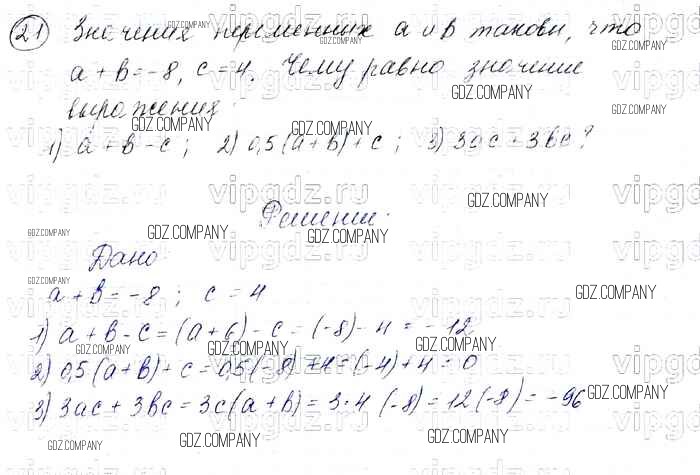 21 Значения переменных a и b таковы, что
a + b = -8, c = 4. Чему равно значение
выражения:
1) a + b - c; 2) 0,5(a+b)+c; 3) 3ac + 3bc?
Решение.
Дано
a + b = -8; c = 4
1) a + b - c = (a + b) - c = (-8) - 4 = -12
2) 0,5(a+b)+c = 0,5(-8)+4 = (-4)+4 = 0
3) 3ac + 3bc = 3c(a+b) = 3·4(-8) = 12(-8) = -96
vipgdz.ru
GDZ.COMPANY